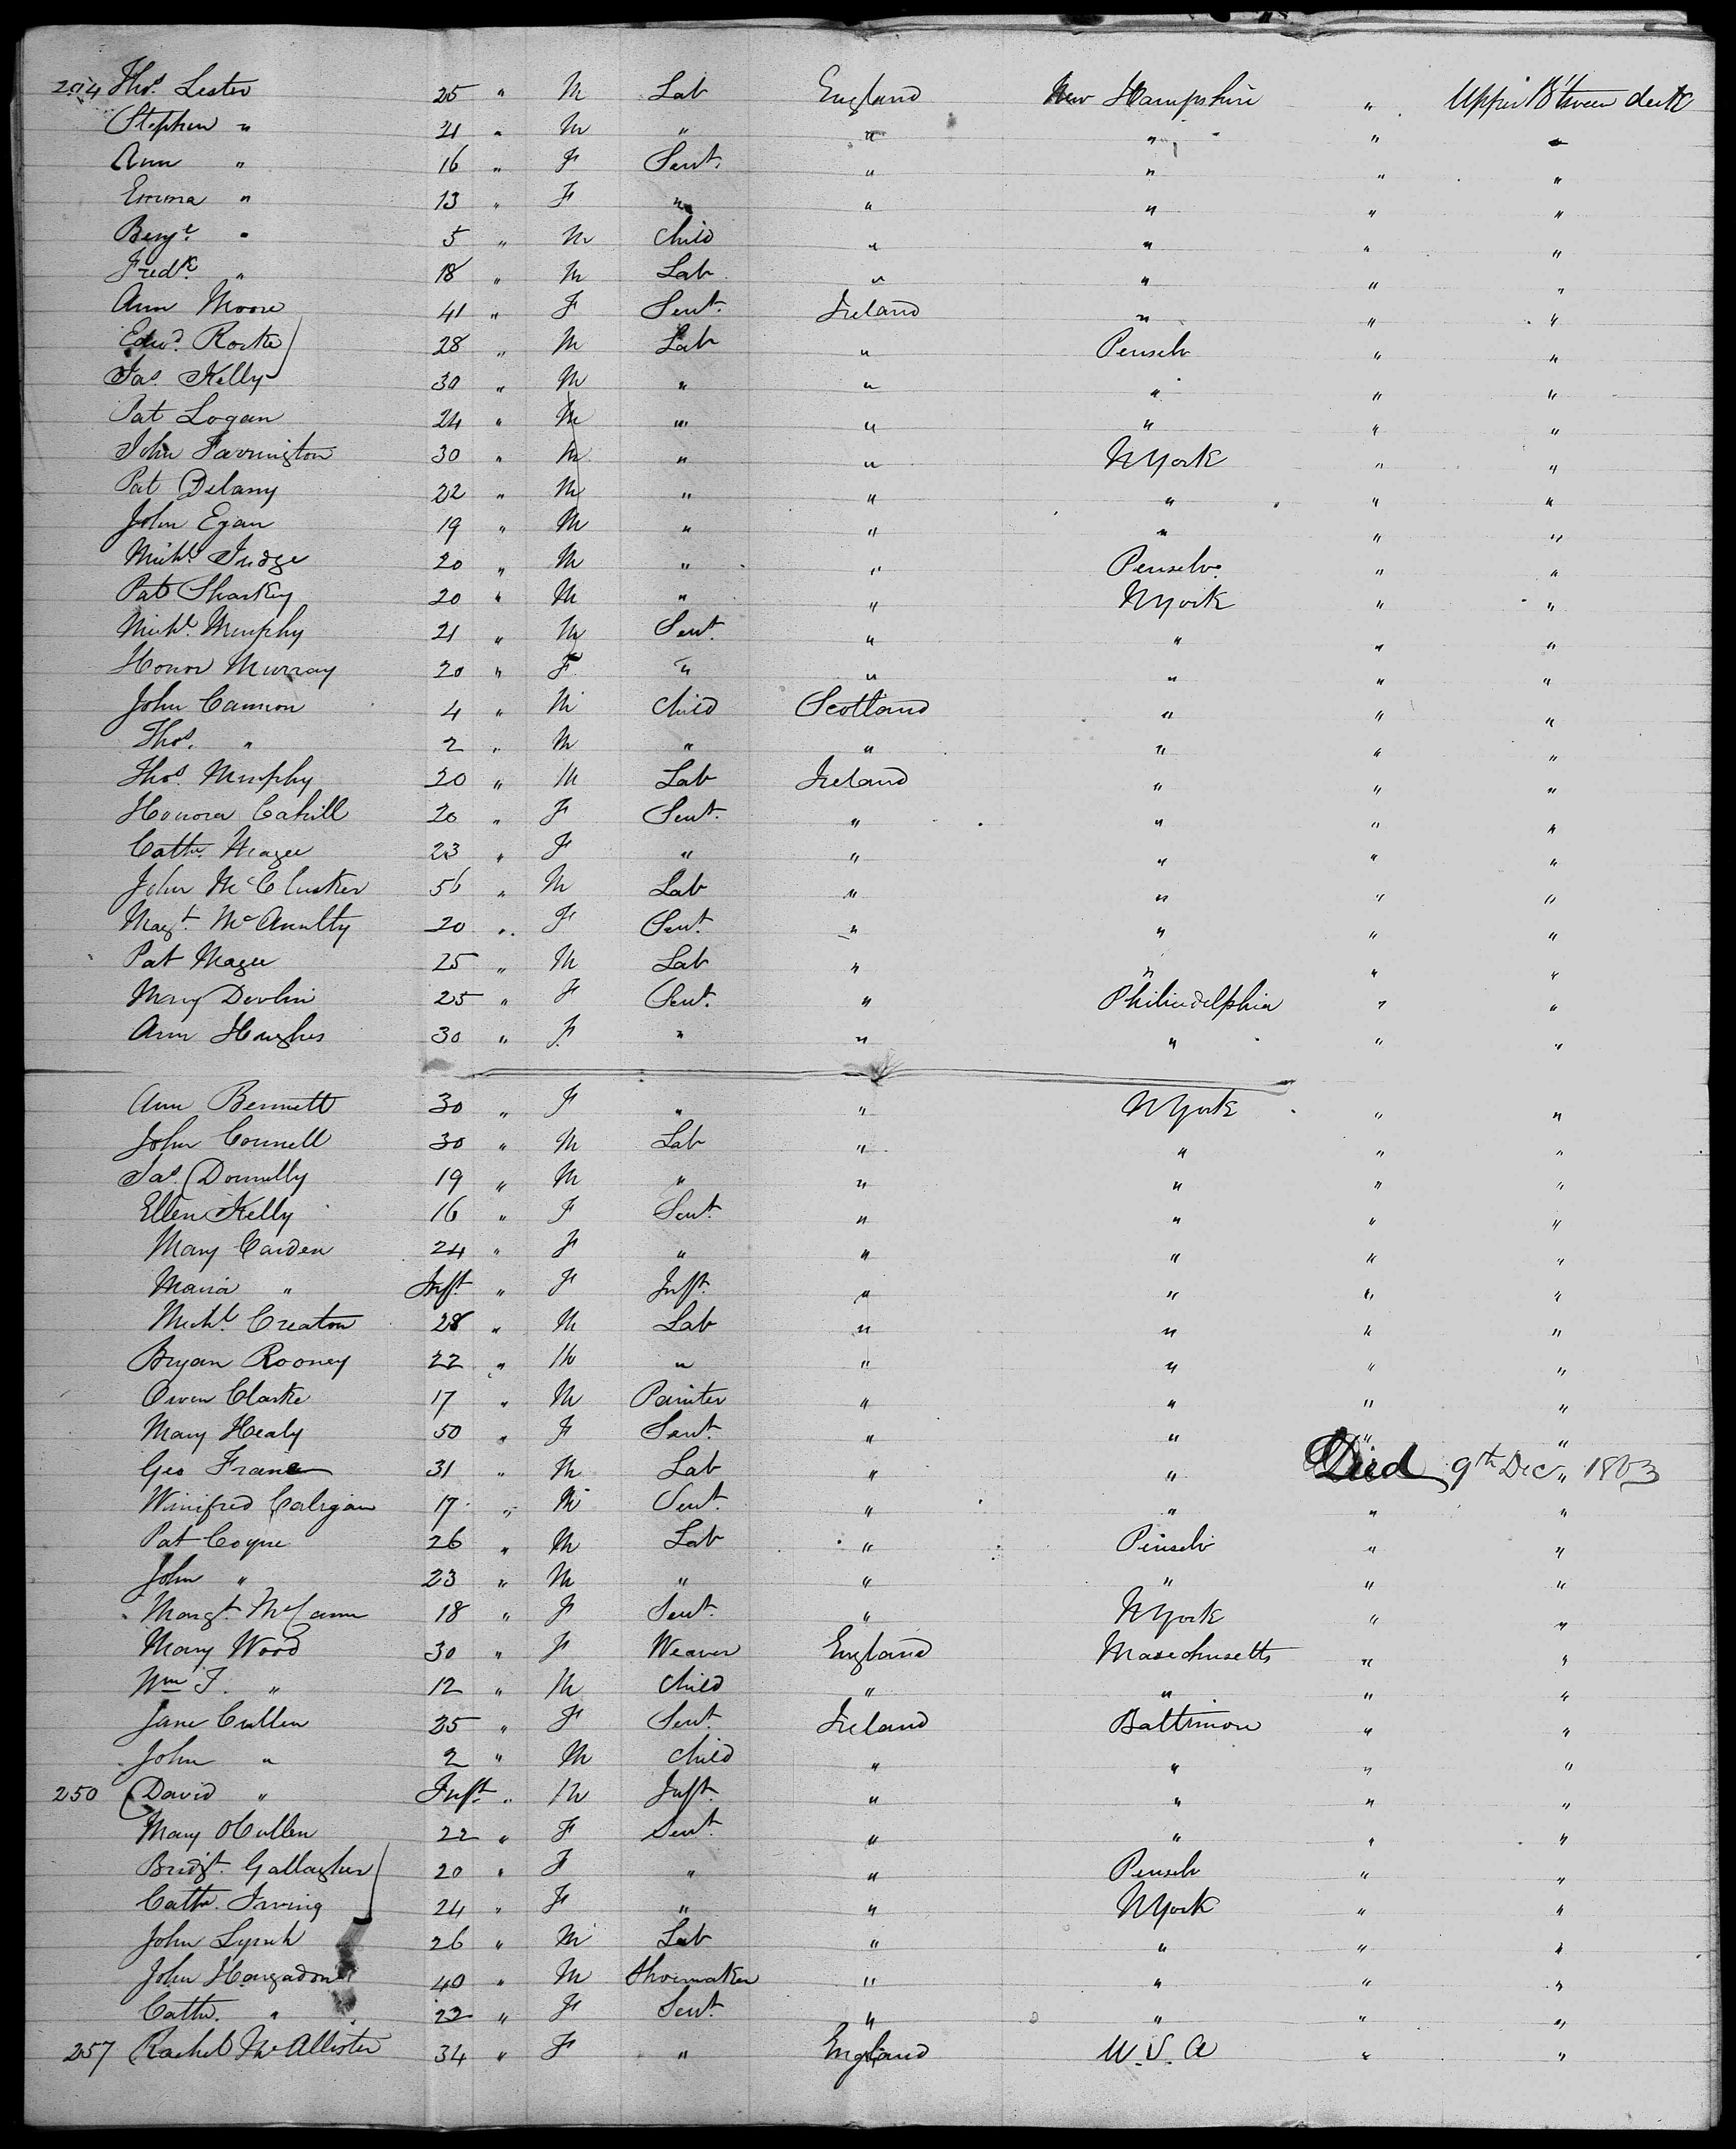 204 Thos. Lester 25 " M Lab England New Hampshire " Upper B'tween deck
Stephen " 21 " M " " " " "
Ann " 16 " F Servt. " " " "
Emma " 13 " F " " " " "
Benjn. " 5 " M Child " " " "
Fredk. " 18 " M Lab " " " "
Ann Moore 41 " F Servt. Ireland " " "
Edwd. Rorke 28 " M Lab " Penselv " "
Jas. Kelly 30 " M " " " " "
Pat Logan 24 " M " " " " "
John Farrington 30 " M " " N York " "
Pat Delany 22 " M " " " " "
John Egan 19 " M " " " " "
Michl. Judge 20 " M " " Penselv. " "
Pat Sharkey 20 " M " " N York " "
Michl. Murphy 21 " M Servt. " " " "
Honor Murray 20 " F " " " " "
John Cannon 4 " M Child Scotland " " "
Thos. " 2 " M " " " " "
Thos. Murphy 20 " M Lab Ireland " " "
Honora Cahill 20 " F Servt. " " " "
Cathe. Magee 23 " F " " " " "
John McClusker 56 " M Lab " " " "
Magt. McAnulty 20 " F Servt. " " " "
Pat Magee 25 " M Lab " " " "
Mary Devlin 25 " F Servt. " Philiadelphia " "
Ann Hughes 30 " F " " " " "
Ann Bennett 30 " F " " N York " "
John Connell 30 " M Lab " " " "
Jas. Donnelly 19 " M " " " " "
Ellen Kelly 16 " F Servt. " " " "
Mary Carden 24 " F " " " " "
Maria " Inft. " F Inft. " " " "
Michl. Creaton 28 " M Lab " " " "
Bryan Rooney 22 " M " " " " "
Owen Clarke 17 " M Painter " " " "
Mary Healy 50 " F Servt. " " " "
Geo Frane 31 " M Lab " " " Died 9th Dec " 1863
Winifred Caligan 17 " M Servt. " " " "
Pat Coyne 26 " M Lab " Penselv " "
John " 23 " M " " " " "
Margt. McCann 18 " F Servt. " N York " "
Mary Wood 30 " F Weaver England Masechusetts " "
Wm J. " 12 " M Child " " " "
Jane Cullen 25 " F Servt. Ireland Baltimore " "
John " 2 " M Child " " " "
250 David " Inft. " M Inft. " " " "
Mary O Cullen 22 " F Servt. " " " "
Bridgt. Gallagher 20 " F " " Penselv " "
Cathe. Irving 24 " F " " N York " "
John Lynch 26 " M Lab " " " "
John Hargadon 40 " M Shoemaker " " " "
Cathe. " 22 " F Servt. " " " "
257 Rachel McAllister 34 " F " England U.S.A " "